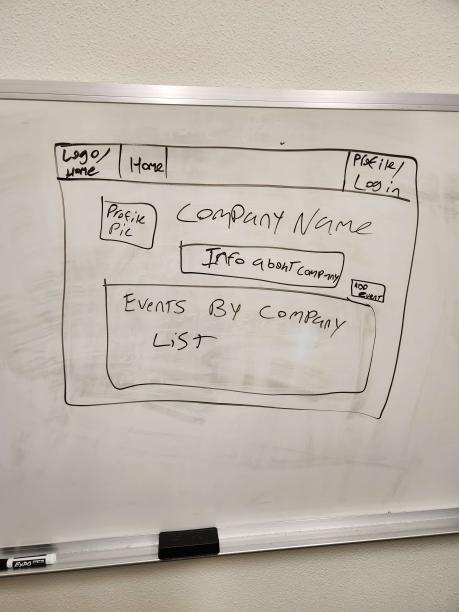 Logo/
Home
Home
Profile/
Login
Profile
Pic
Company Name
Info about company
ADD
Event
Events By Company
List
EXPO